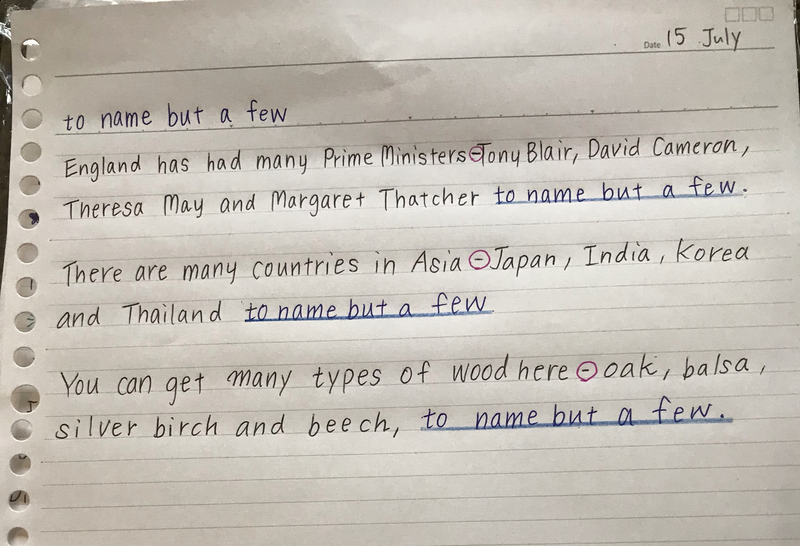 Date 15 July
to name but a few
England has had many Prime Ministers - Tony Blair, David Cameron,
Theresa May and Margaret Thatcher to name but a few.
There are many countries in Asia - Japan, India, Korea
and Thailand to name but a few
You can get many types of wood here - oak, balsa,
silver birch and beech, to name but a few.